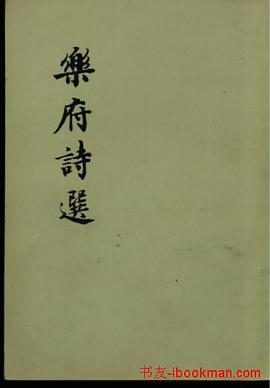 樂府詩選
书友-ibookman.com